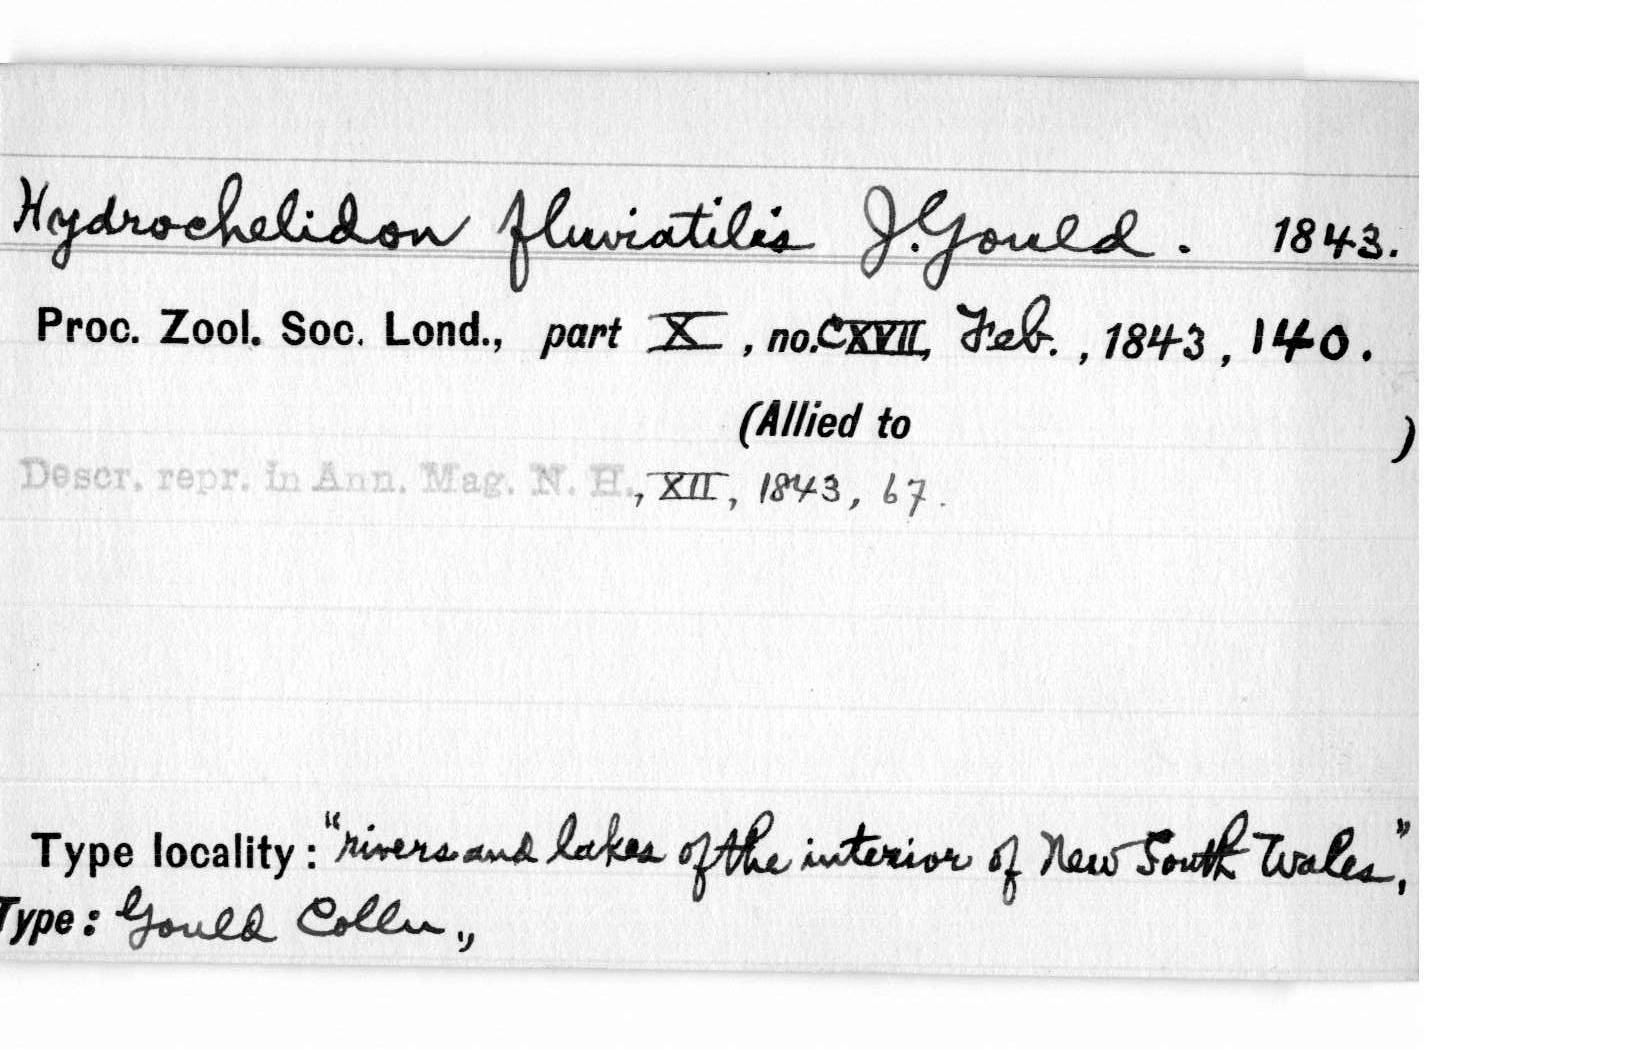 Hydrochelidon fluviatilis J. Gould. 1843.
Proc. Zool. Soc. Lond., part X, no. CXVII, Feb., 1843, 140.
(Allied to )
Descr. repr. in Ann. Mag. N. H., XII, 1843, 67.
Type locality: "rivers and lakes of the interior of New South Wales,"
Type: Gould Colln.,